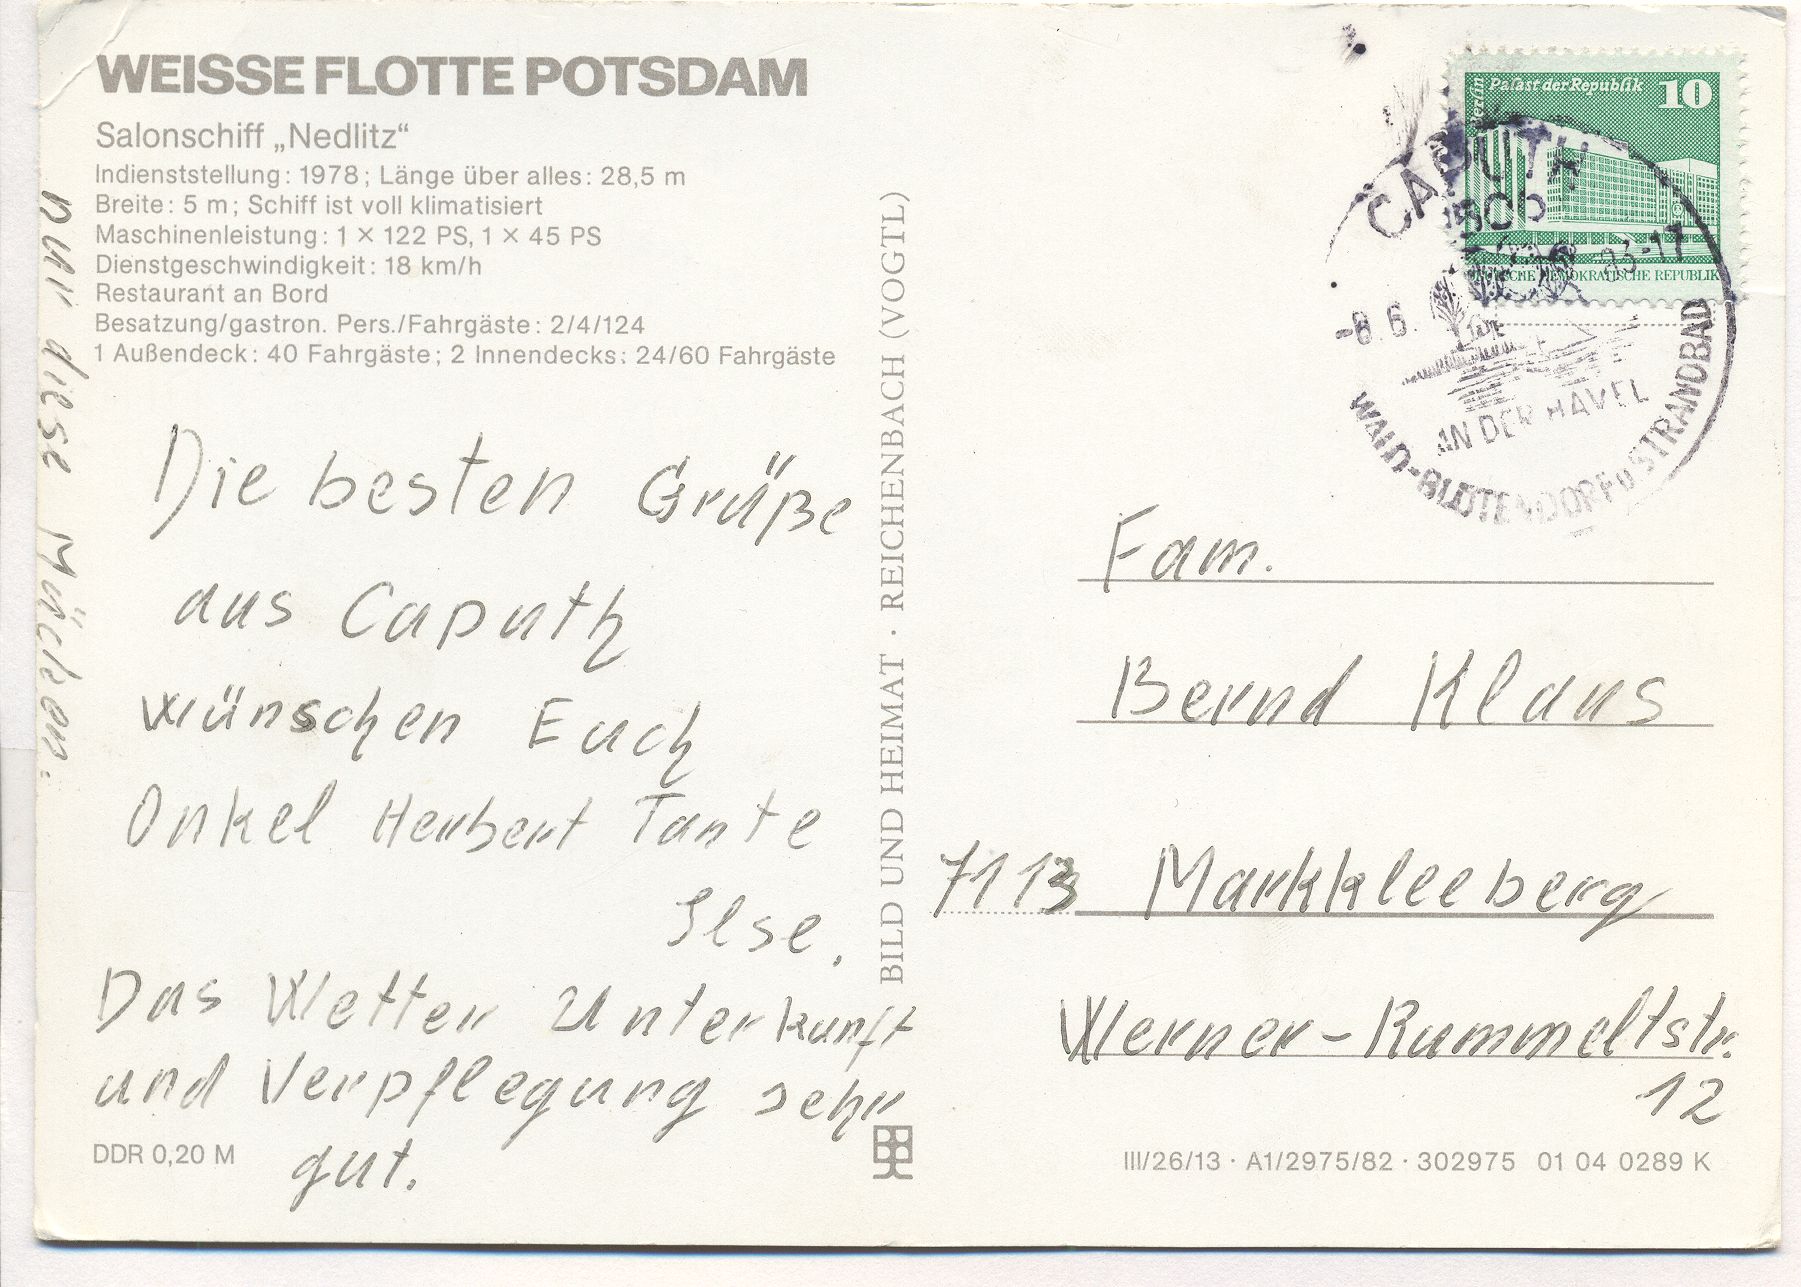 WEISSE FLOTTE POTSDAM
Salonschiff „Nedlitz“
Indienststellung: 1978; Länge über alles: 28,5 m
Breite: 5 m; Schiff ist voll klimatisiert
Maschinenleistung: 1 × 122 PS, 1 × 45 PS
Dienstgeschwindigkeit: 18 km/h
Restaurant an Bord
Besatzung/gastron. Pers./Fahrgäste: 2/4/124
1 Außendeck: 40 Fahrgäste; 2 Innendecks: 24/60 Fahrgäste
Die besten Grüße
aus Caputh
wünschen Euch
Onkel Herbert Tante
Ilse.
Das Wetter Unterkunft
und Verpflegung sehr
gut.
nur diese Mücken.
DDR 0,20 M
BILD UND HEIMAT · REICHENBACH (VOGTL)
Berlin Palast der Republik 10
DEUTSCHE DEMOKRATISCHE REPUBLIK
CAPUTH
1506
-8.6. 83-17
AN DER HAVEL
WALD-BLÜTENDORF U STRANDBAD
Fam.
Bernd Klaus
7113 Markkleeberg
Werner-Rummeltstr.
12
III/26/13 · A1/2975/82 · 302975 01 04 0289 K